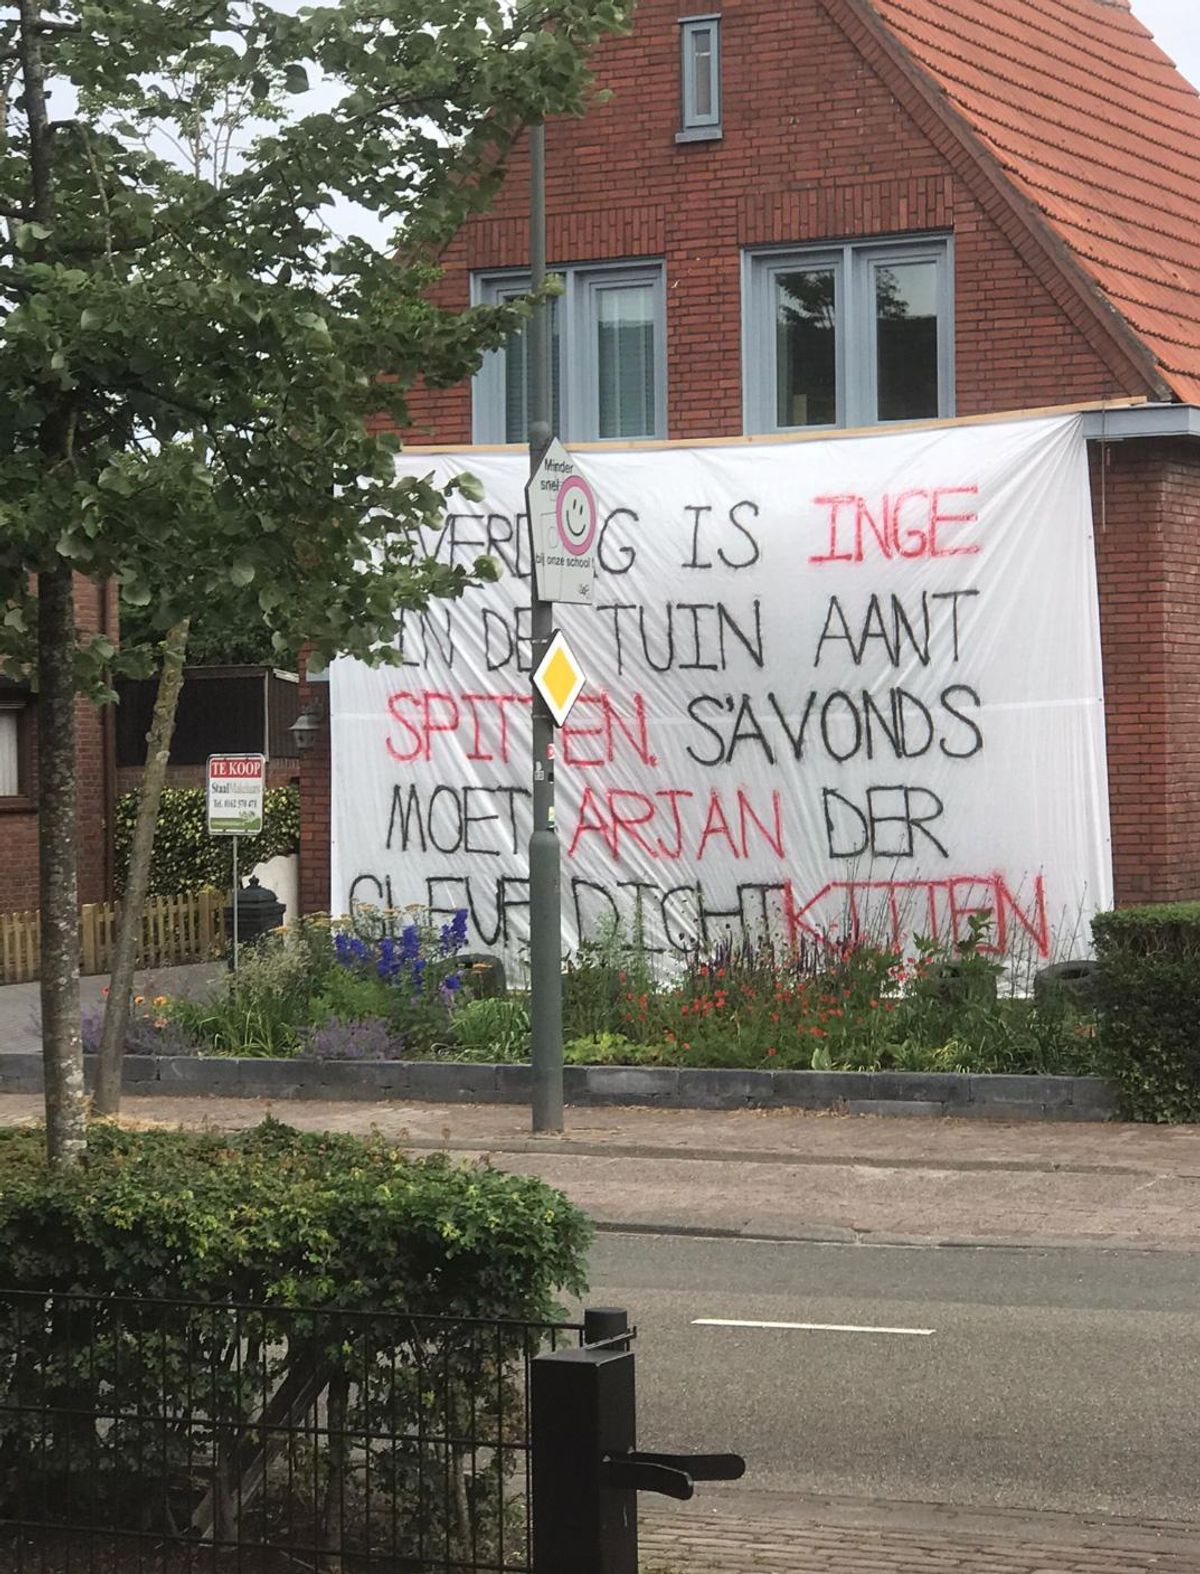 OVERDAG IS INGE
IN DE TUIN AANT
SPITTEN. S'AVONDS
MOET ARJAN DER
GLEUF DICHTKITTEN
Minder
snel
bij onze school!
TE KOOP
Staal Makelaars
Tel. 0162 570 471